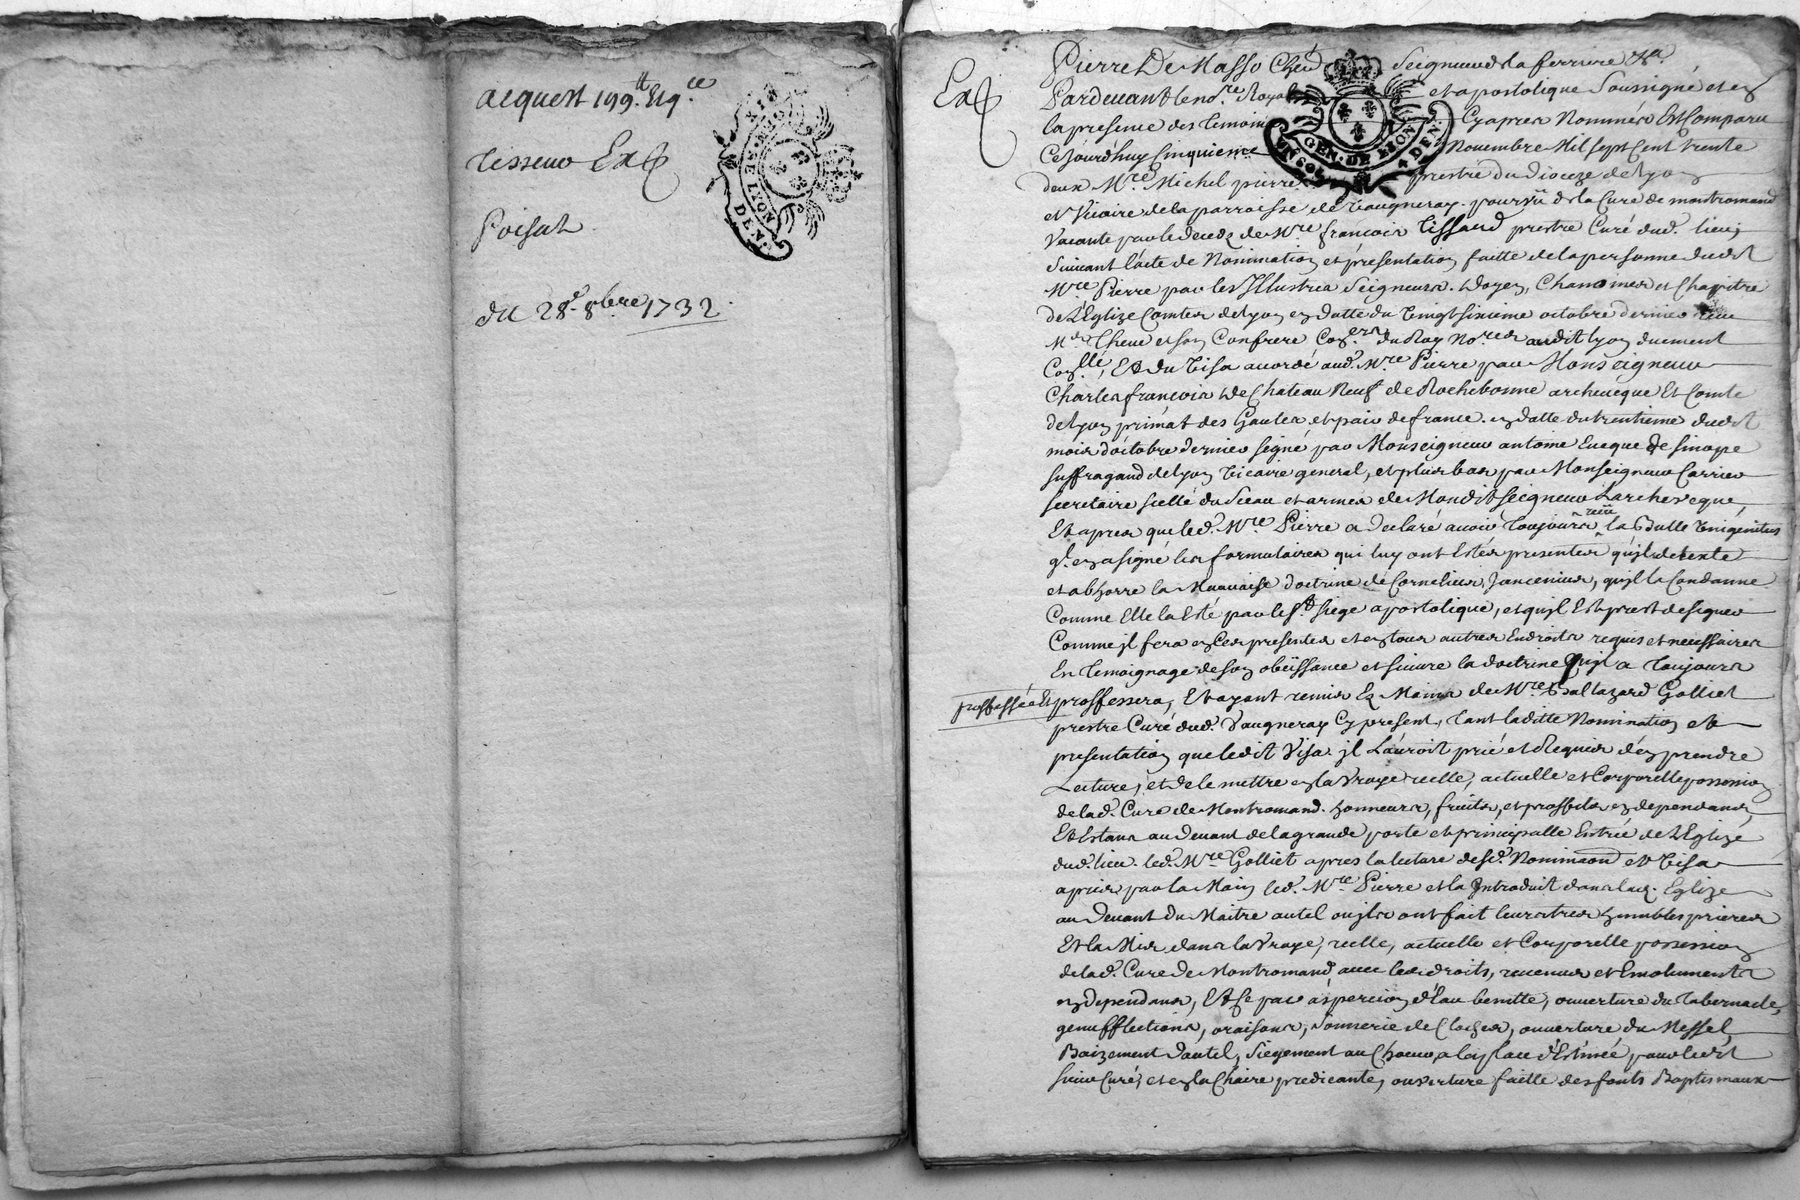 acquest 199.tt Etq.ce
Tisseur Ex
Poisat
du 28.e 8bre 1732.
GEN. DE LYON
DEN.
Ex
Pierre De Masso Cher Seigneur de la ferriere &a
Pardevant le nore Royal et apostolique Soussigné et en
la presence des Temoins Cy apres Nommés Est Comparu
Ce jourd'huy Cinquieme Novembre Mil sept Cent trente
deux Mre Michel pierre prestre du Dioceze de Lyon
et Vicaire de la parroisse de Vaugneray. pourvû de la Cure de montromand
Vacante par le decedz de Mre françois Tissaud prestre Curé dud. lieu,
Suivant l'acte de Nomination et présentation faitte de la personne dudit
Mre Pierre par les Illustres Seigneurs. Doyen, Chanoines et Chapitre
de L'Eglize Comtes de Lyon en datte du Vingt sixieme octobre dernier reçu
Me Theve et son Confrere Coners du Roy Nores audit Lyon duement
Conllé, Et du Visa accordé aud. Mre Pierre par Monseigneur
Charles françois De Chateau Neuf de Rochebonne archeveque Et Comte
de Lyon primat des Gaules et pair de france. en datte du trentieme dudit
mois d'octobre dernier signé par Monseigneur antoine Eveque De sinope
suffragand de Lyon Vicaire general, et plus bas par Monseigneur Carrier
secretaire scellé du Sceau et armes de Mondit seigneur Larcheveque
Et apres que led. Mre Pierre a declaré avoir Toujours reçu la Bulle Unigenitus
qu'il en a signé les formulaires qui luy ont Estés presentes qu'il deteste
et abhorre la Mauvaise doctrine de Cornelius Jancenius, qu'il la Condanne
Comme Elle la Esté par le St siege apostolique, et qu'il Est prest de signer
Comme jl fera en Ces presentes et en tous autres Endroits requis et necessaires
En Temoignage de son obeissance et suivre la doctrine Qu'il a Toujours
proffessée et proffessera, Et ayant remis Ez Mains de Mre Baltazard Golliet
prestre Curé dud. Vaugneray Cy present, Tant laditte Nomination et
presentation que ledit Visa jl L'auroit prié et Requis d'en prendre
Lecture, et de le mettre en la Vraye reelle, actuelle et Corporelle possession
de lad. Cure de Montromand. honneurs, fruits, et proffits en dependans
Et Estans au Devant de la grande porte et principalle Entrée de L'Eglize
dud. lieu. led. Mre Golliet apres la lecture desd. Nominaon et Visa
a pris par la Main led. Mre Pierre et la Introduit dans lad. Eglize
au Devant du Maitre autel ou jls ont fait leurs tres humbles prieres
Et la Mis dans la Vraye, reelle, actuelle et Corporelle possession
de lad. Cure De Montromand avec les droits, revenus et Emoluments
en dependans, Et Ce par aspercion d'Eau benitte, ouverture du Tabernacle,
genufflections, oraisons, sonnerie de Cloches, ouverture du Messel
Baizement dautel, siegement au Choeur a la place d'Estinée pour ledit
sieur Curé, et en la Chaire predicante, ouverture faitte des fonts Baptismaux